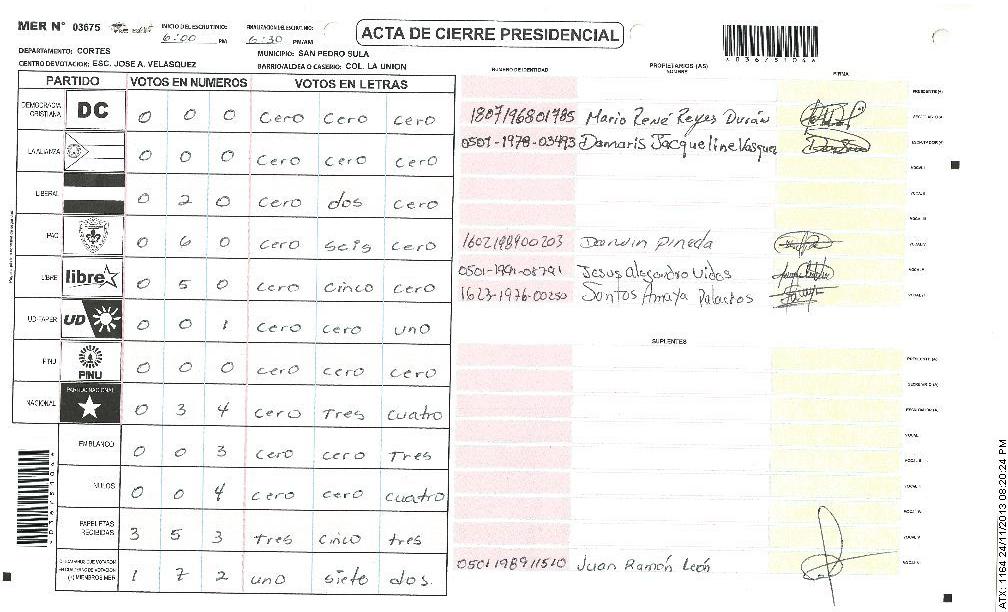 MER N° 03675
INICIO DEL ESCRUTINIO: 6:00 PM
FINALIZACION DEL ESCRUTINIO: 6:30 PM/AM
ACTA DE CIERRE PRESIDENCIAL
DEPARTAMENTO: CORTES
MUNICIPIO: SAN PEDRO SULA
CENTRO DE VOTACION: ESC. JOSE A. VELASQUEZ
BARRIO/ALDEA O CASERIO: COL. LA UNION
PARTIDO VOTOS EN NUMEROS VOTOS EN LETRAS
DEMOCRACIA CRISTIANA DC 0 0 0 cero cero cero
LA ALIANZA 0 0 0 cero cero cero
LIBERAL 0 2 0 cero dos cero
PAC 0 6 0 cero seis cero
LIBRE libre 0 5 0 cero cinco cero
UD-FAPER UD 0 0 1 cero cero uno
PINU PINU 0 0 0 cero cero cero
NACIONAL PARTIDO NACIONAL 0 3 4 cero tres cuatro
EN BLANCO 0 0 3 cero cero tres
NULOS 0 0 4 cero cero cuatro
PAPELETAS RECIBIDAS 3 5 3 tres cinco tres
CIUDADANOS QUE VOTARON EN CUADERNO DE VOTACION (+) MIEMBROS MER 1 7 2 uno siete dos.
NUMERO DE IDENTIDAD PROPIETARIOS (AS) NOMBRE FIRMA
PRESIDENTE (A)
1807196801785 Mario René Reyes Durán SECRETARIO (A)
0501-1978-03493 Damaris Jacqueline Vasquez ESCRUTADOR (A)
VOCAL I
VOCAL II
VOCAL III
1602198900203 Darwin Pineda VOCAL IV
0501-1991-03791 Jesus Alejandro Vidas VOCAL V
1623-1976-00250 Santos Amaya Palacios VOCAL VI
SUPLENTES
PRESIDENTE (A)
SECRETARIO (A)
ESCRUTADOR (A)
VOCAL I
VOCAL II
VOCAL III
VOCAL IV
VOCAL V
0501198911510 Juan Ramón León VOCAL VI
ATX: 1164 24/11/2013 08:20:24 PM